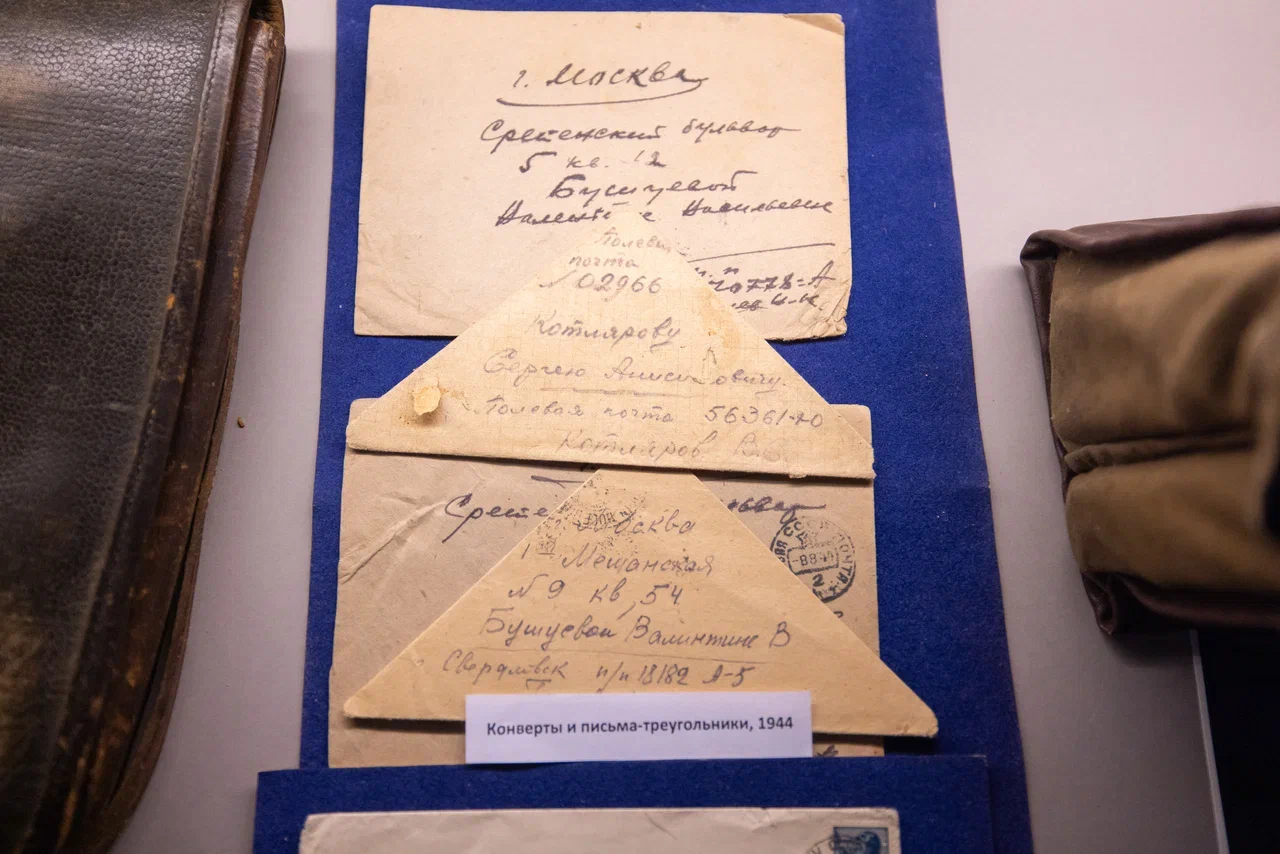 г. Москва
Сретенский бульвар
5 кв. 12
Бушуевой
Васильевне
Полевая
почта
№ 02966
40778-А
Котлярову
Сергею Анисимовичу
Полевая почта 56361-Ю
Котляров В.С.
Срете
львар
Москва
1-я Мещанская
№ 9 кв, 54
Бушуевой Валинтине В
Свердловск п/п 18182 А-5
ПОЧТА
-8.8.44
2
Конверты и письма-треугольники, 1944